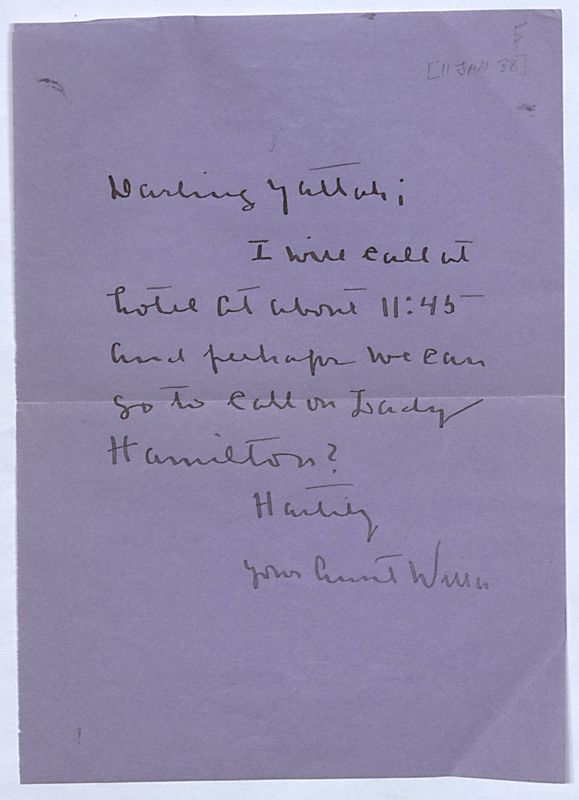 5
[11 JAN 38]
Darling Yaltah;
I will call at
hotel at about 11:45
and perhaps we can
go to call on Lady
Hamilton?
Hastily
your Aunt Willa